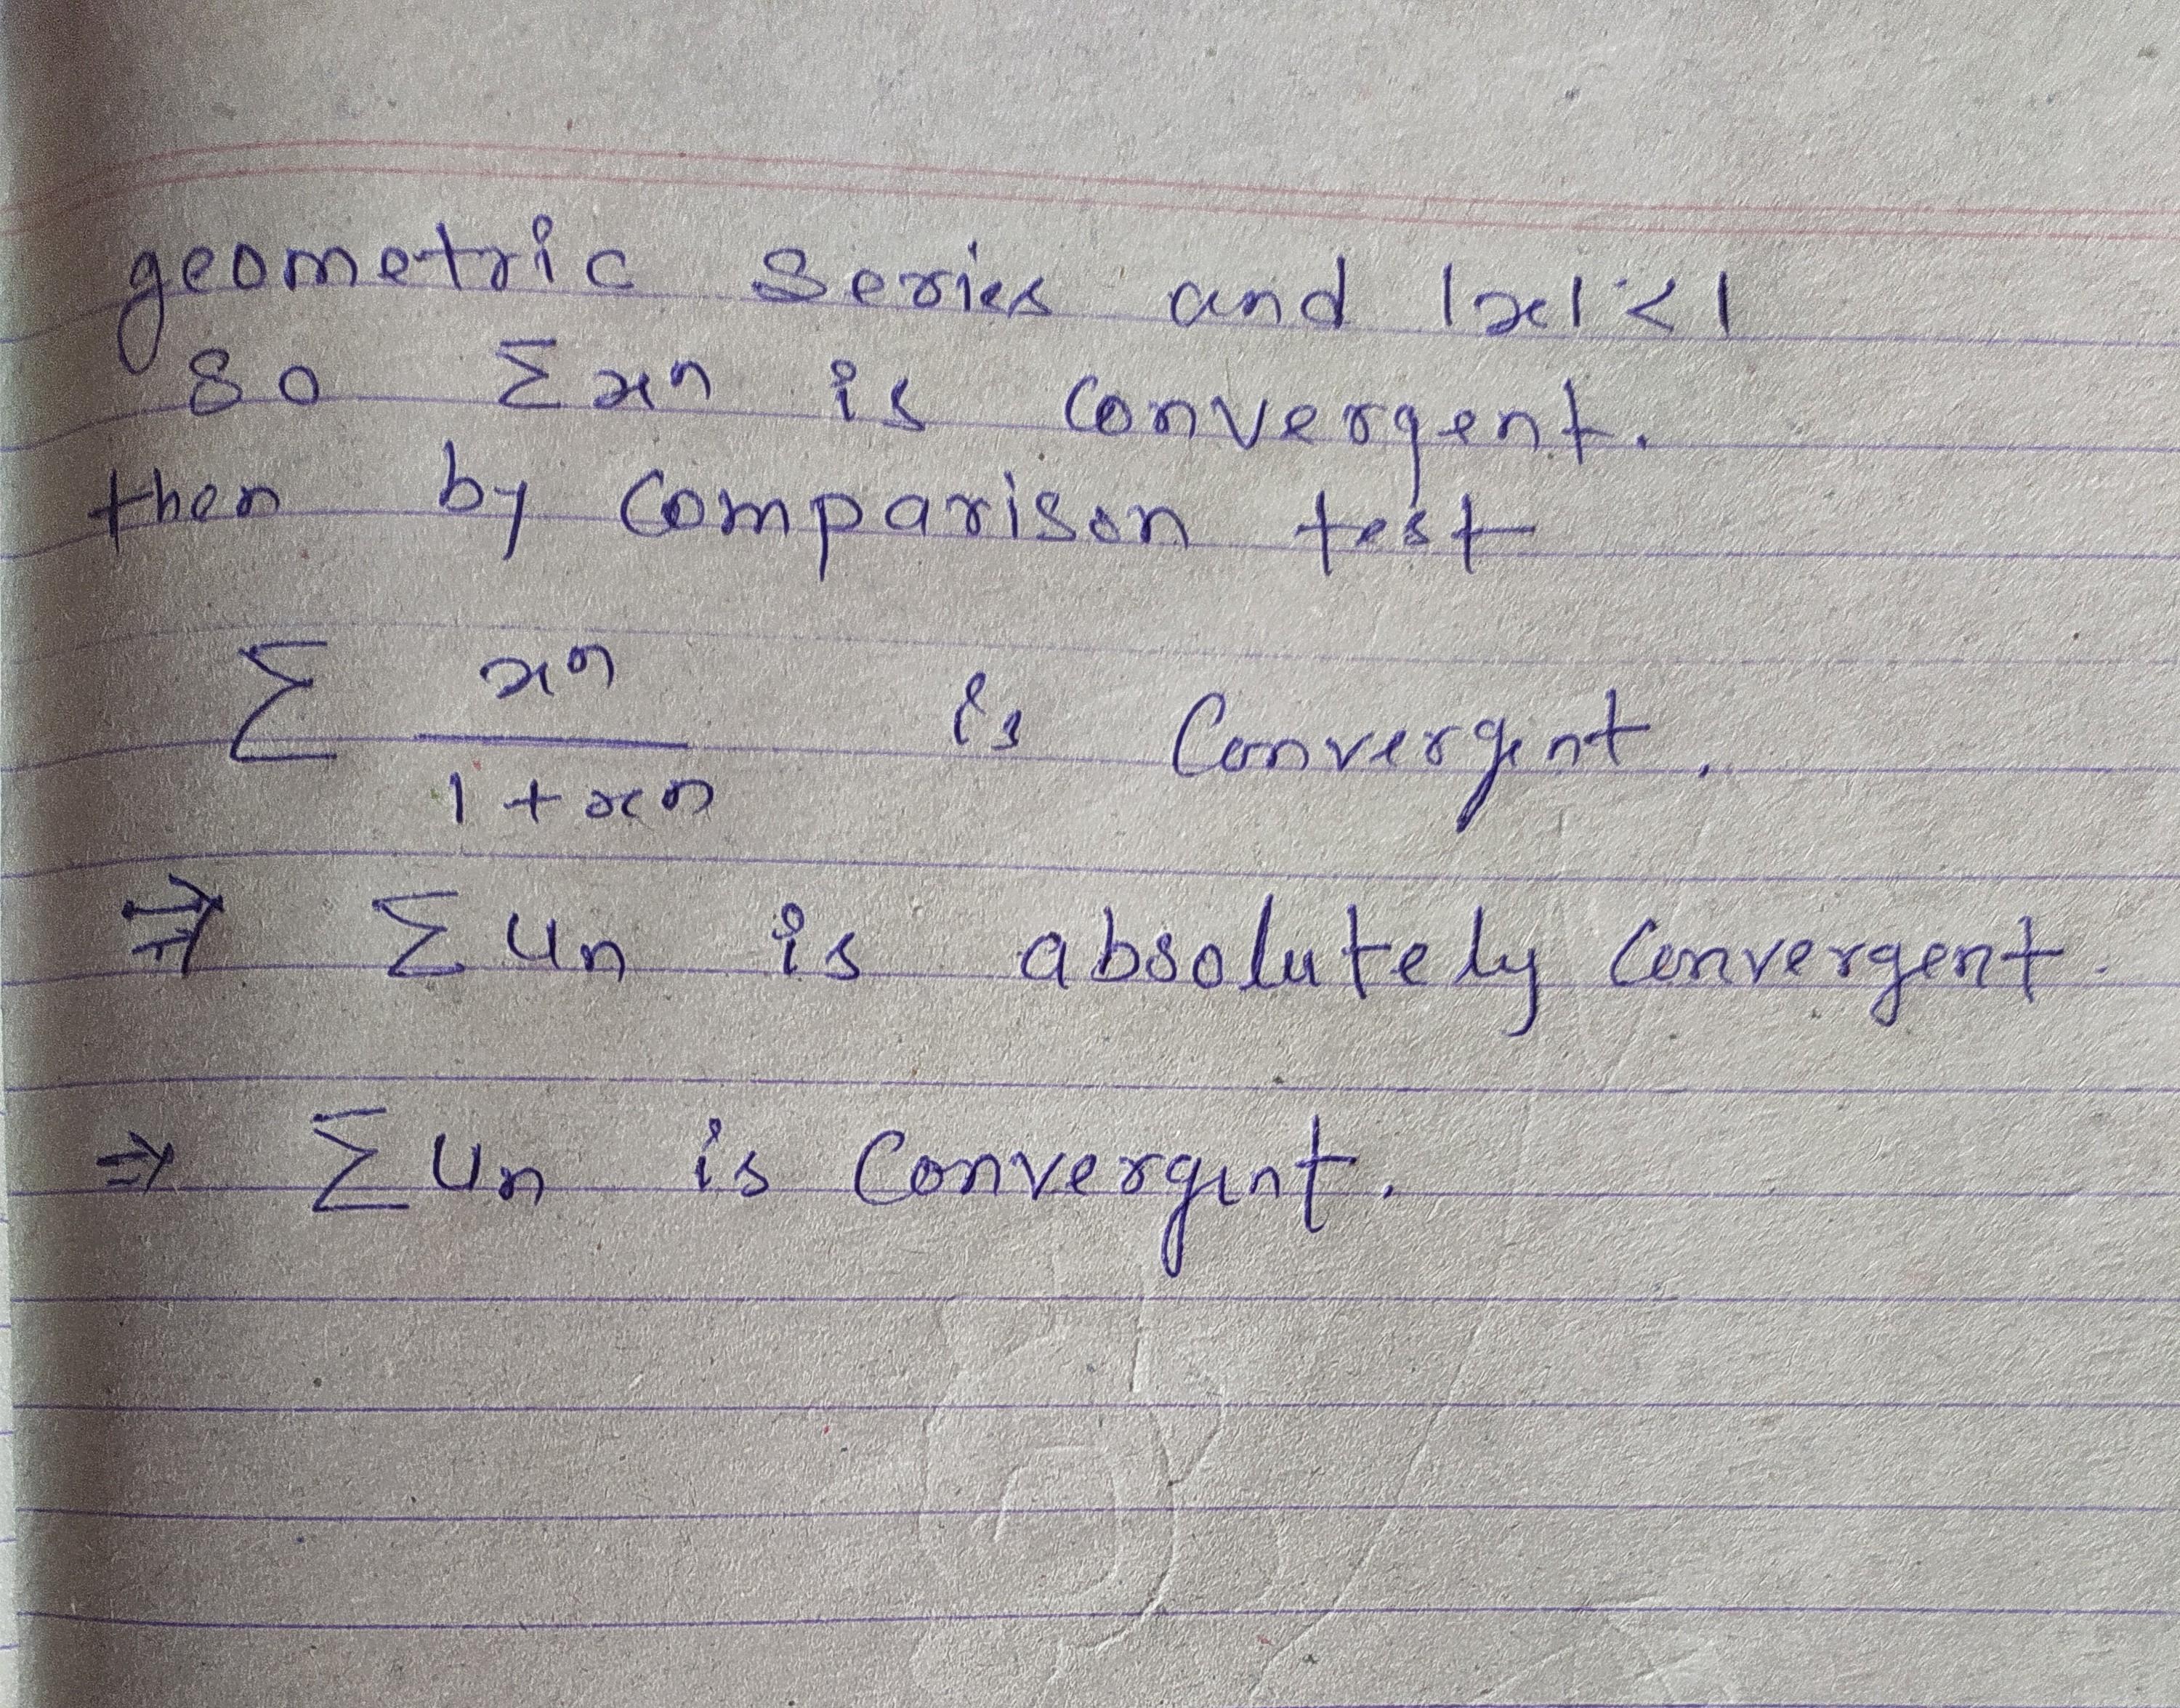 geometric series and |x| < 1
so Σxⁿ is convergent.
then by comparison test
Σ xⁿ / 1 + xⁿ is convergent.
⇒ Σ Un is absolutely convergent.
⇒ Σ Un is convergent.